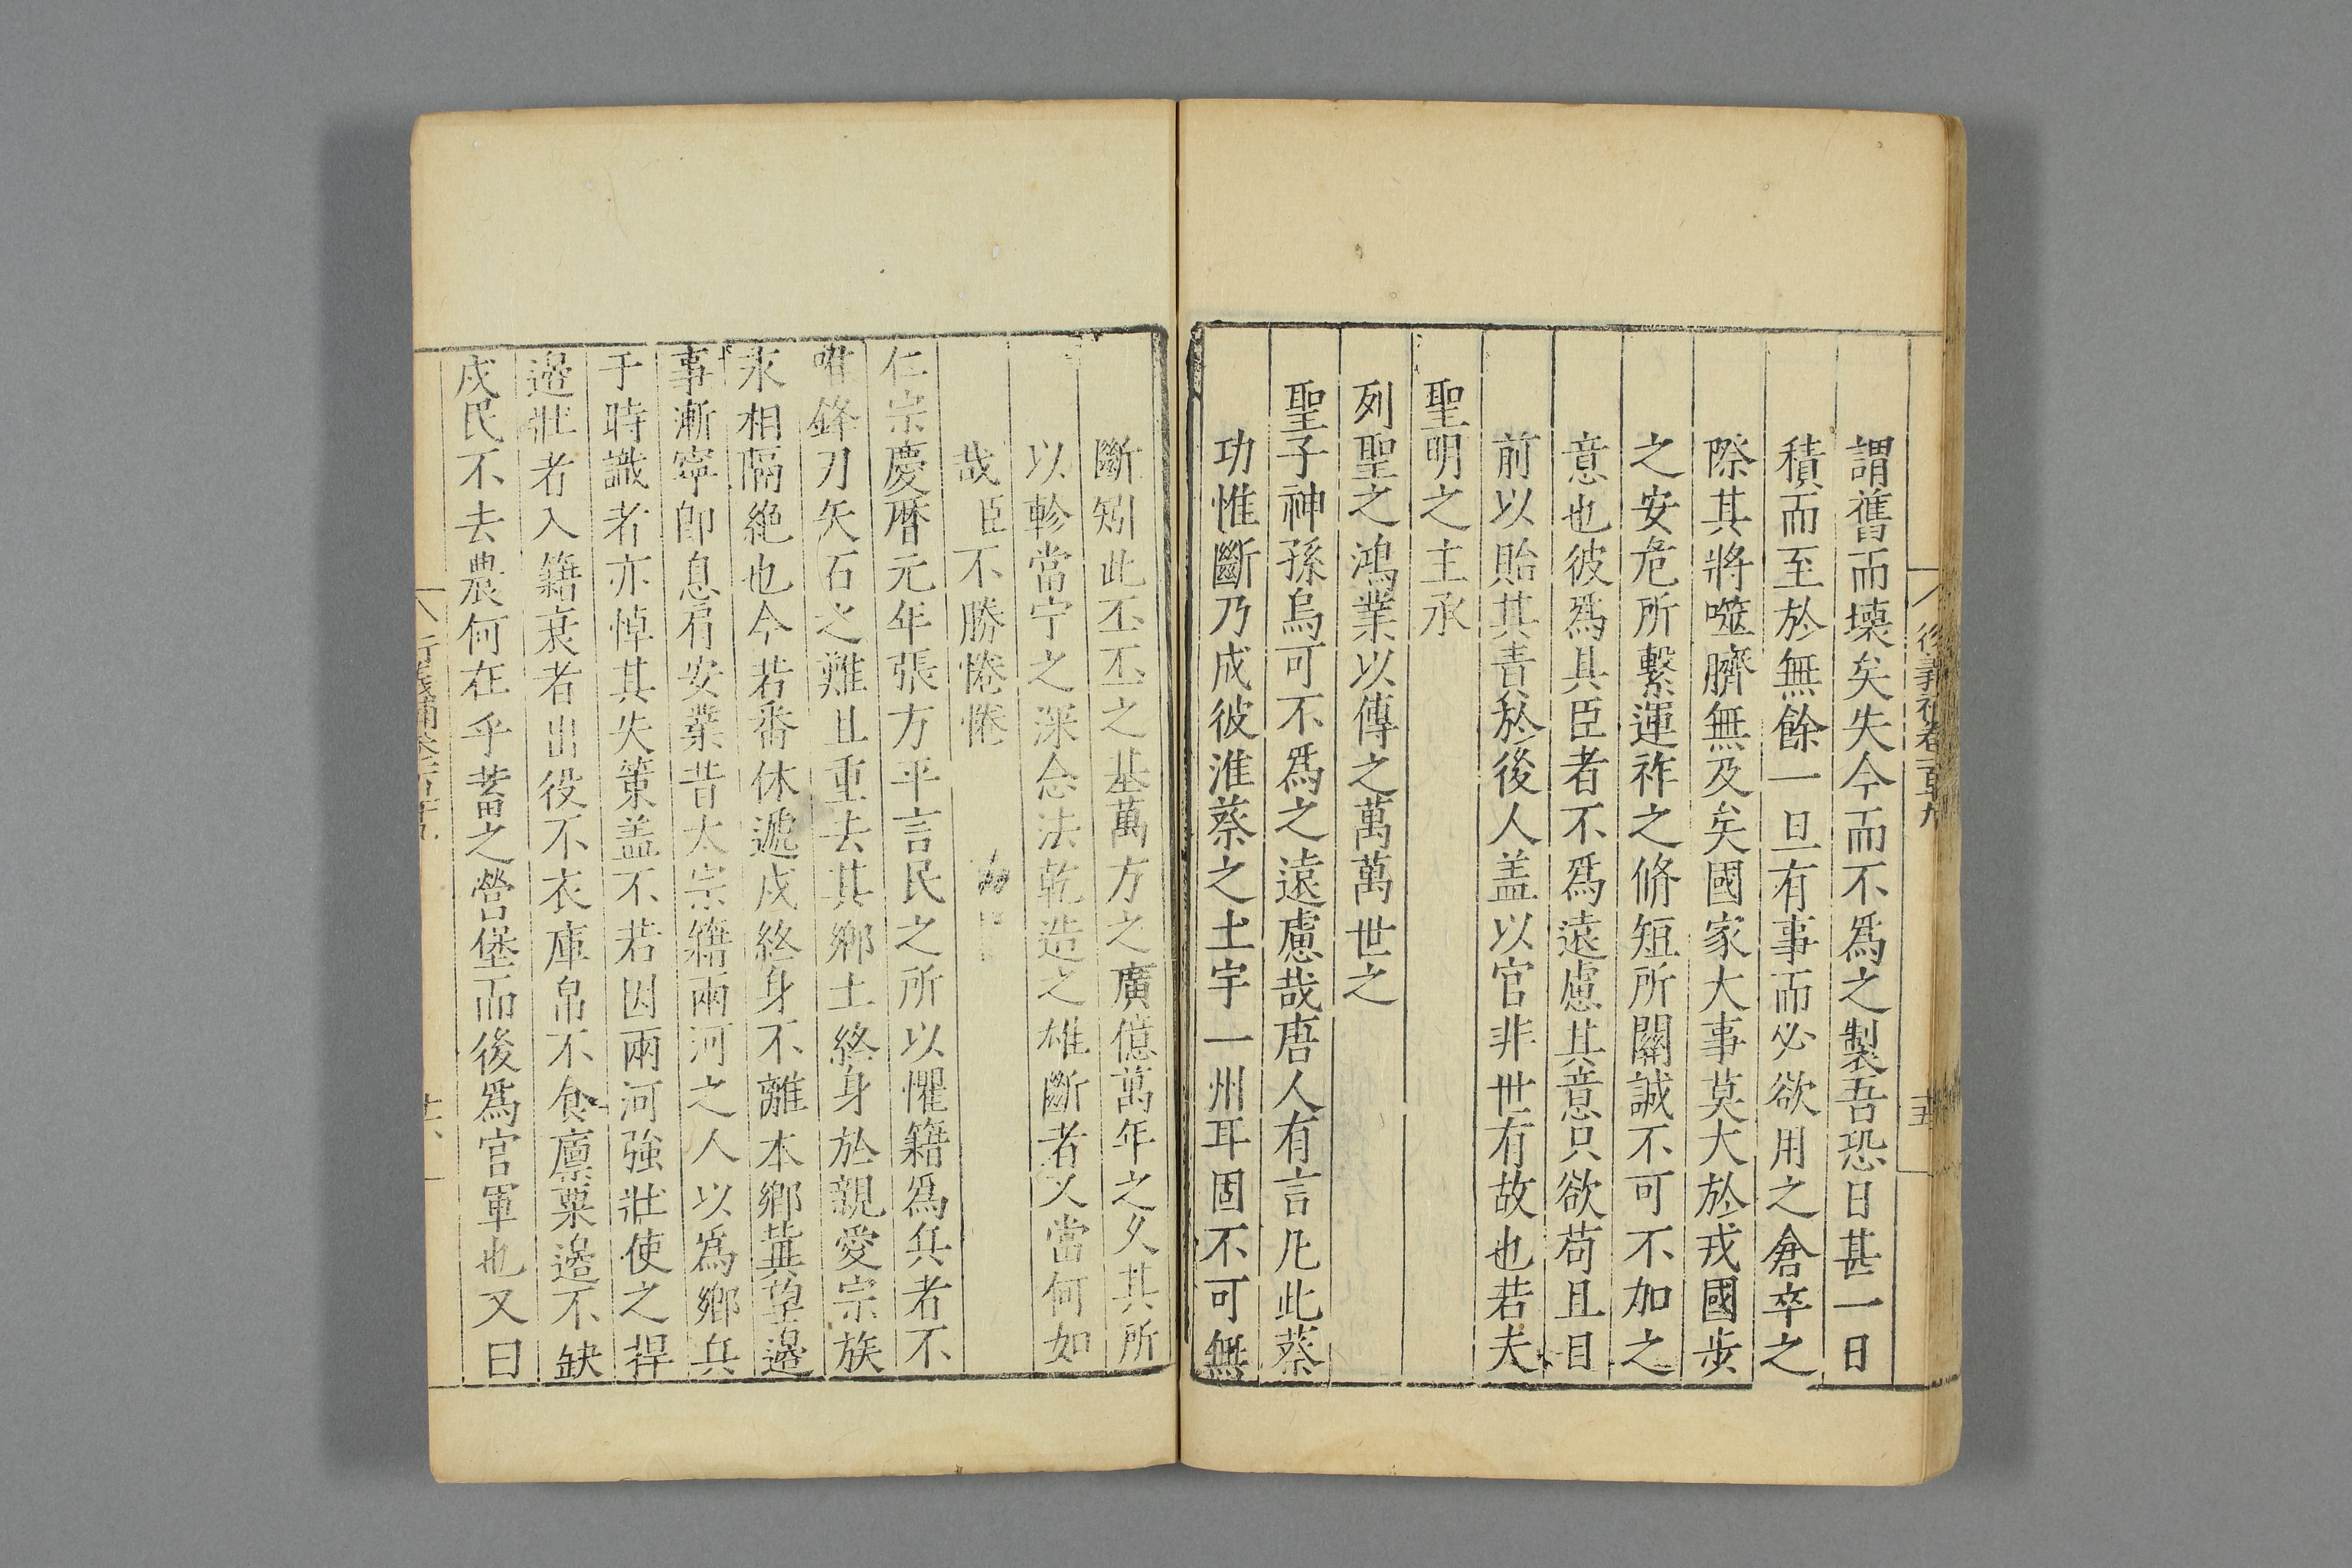 謂舊而壞矣失今而不爲之製吾恐日甚一日
積而至於無餘一旦有事而必欲用之倉卒之
際其將噬臍無及矣國家大事莫大於戎國步
之安危所繫運祚之脩短所關誠不可不加之
意也彼爲其臣者不爲遠慮其意只欲苟且目
前以貽其責於後人盖以官非世有故也若夫
聖明之主承
列聖之鴻業以傳之萬萬世之
聖子神孫烏可不爲之遠慮哉唐人有言凡此蔡
功惟斷乃成彼淮蔡之土宇一州耳固不可無
斷矧此丕丕之基萬方之廣億萬年之久其所
以軫當宁之深念法乾造之雄斷者又當何如
哉臣不勝惓惓
仁宗慶曆元年張方平言民之所以懼籍爲兵者不
唯鋒刃矢石之難且重去其鄉土終身於親愛宗族
永相隔絶也今若番休遞戍終身不離本鄉冀望邊
事漸寧卽息肩安業昔太宗籍兩河之人以爲鄉兵
于時識者亦悼其失策盖不若因兩河強壯使之捍
邊壯者入籍衰者出役不衣庫帛不食廩粟邊不缺
戍民不去農何在乎蓄之營堡而後爲官軍也又曰